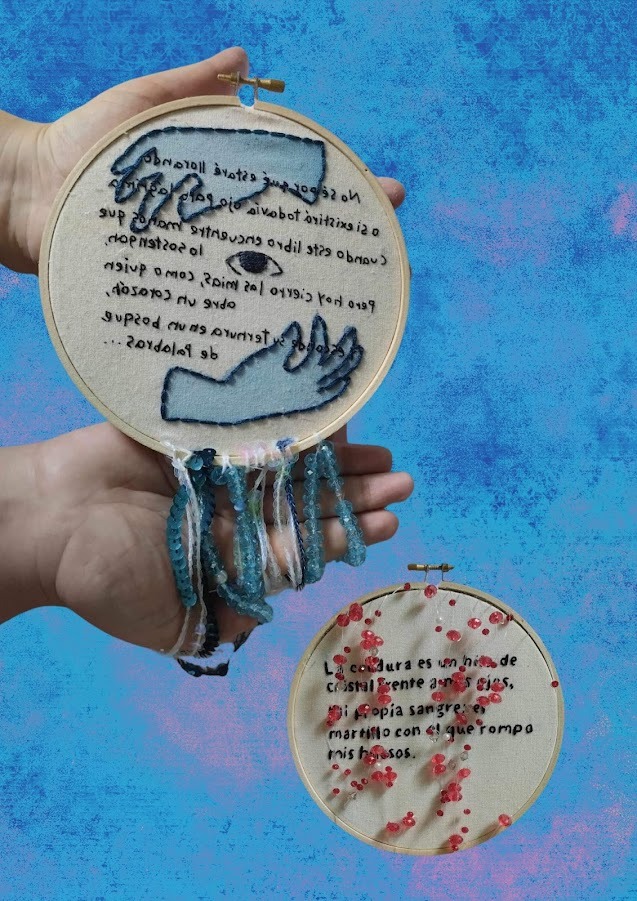 No sé por qué estaré llorando
o si existirá todavía ojo para lágrima
cuando este libro encuentre manos que
lo sostengan.
Pero hoy cierro las mías, como quien
abre un corazón,
y esconde su ternura en un bosque
de Palabras...
La cordura es un hilo de
cristal frente a mis ojos,
Mi propia sangre: el
martillo con el que rompo
mis huesos.